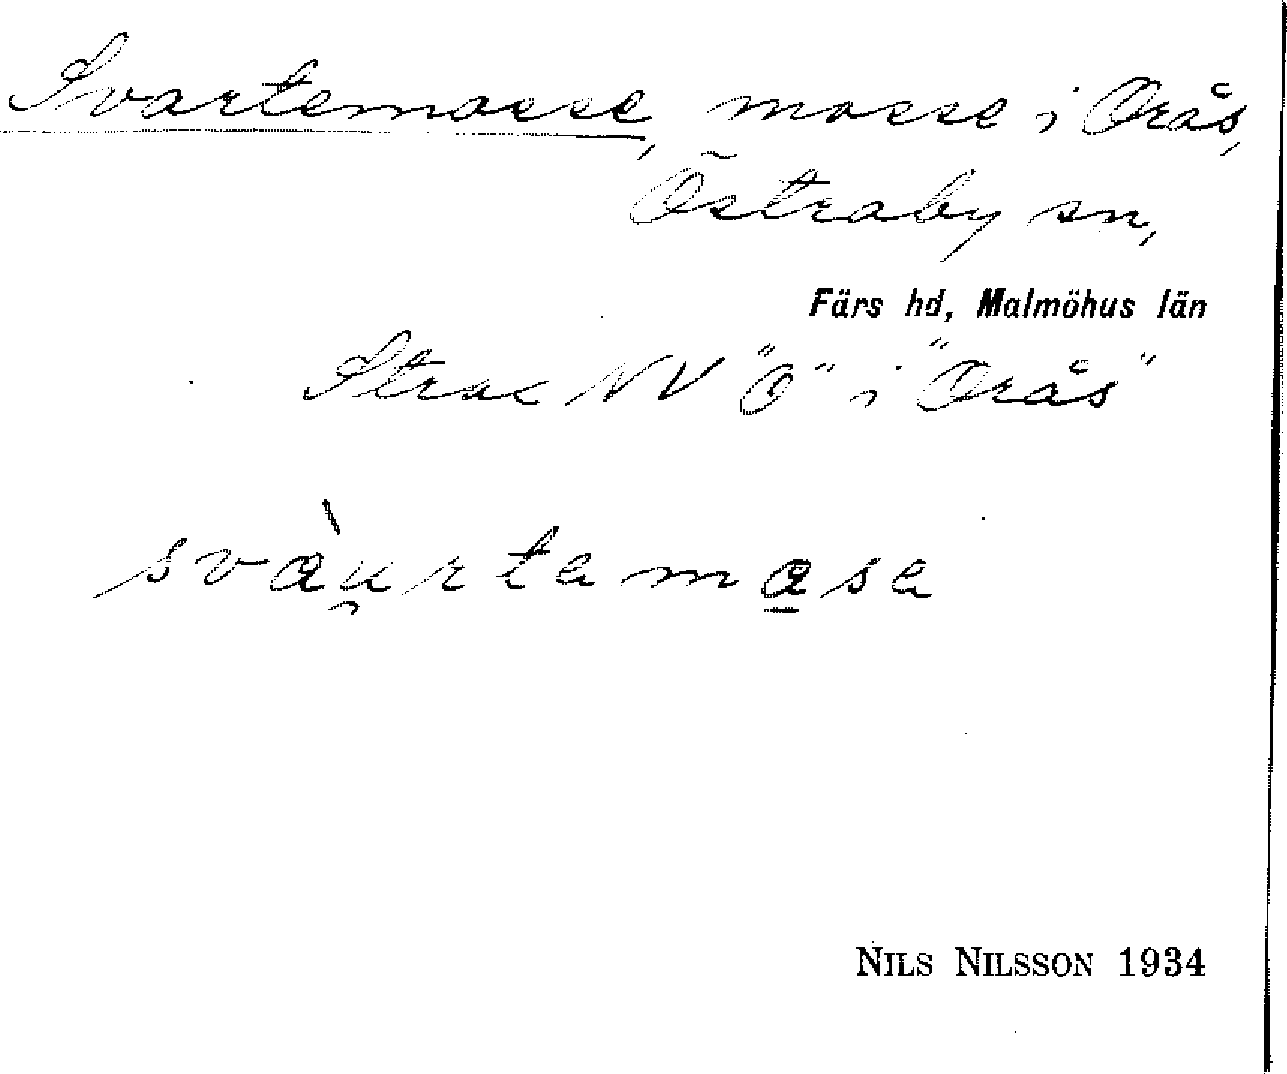 Svartemosse, mosse i Orås,
Östraby sn,
Färs hd, Malmöhus län
Strax NV "O" i "Orås"
svàu̯rtema̲sa
NILS NILSSON 1934